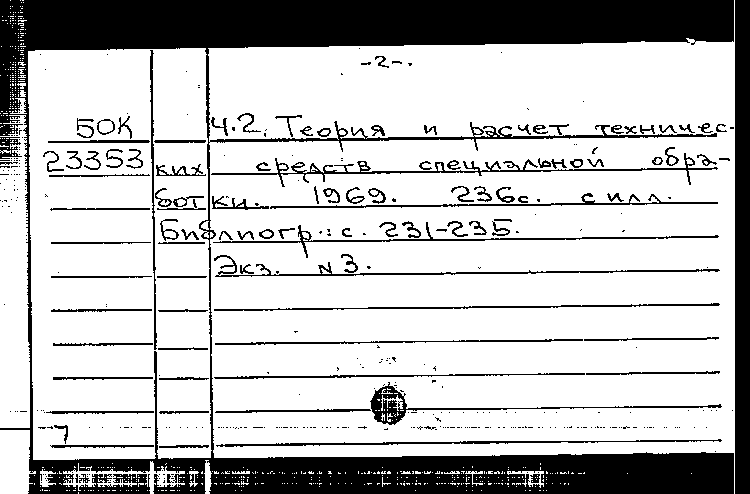 -2-.
50К Ч.2. Теория и расчет техничес-
23353 ких средств специальной обра-
ботки. 1969. 236с. с илл.
Библиогр.: с. 231-235.
Экз. N3.
7